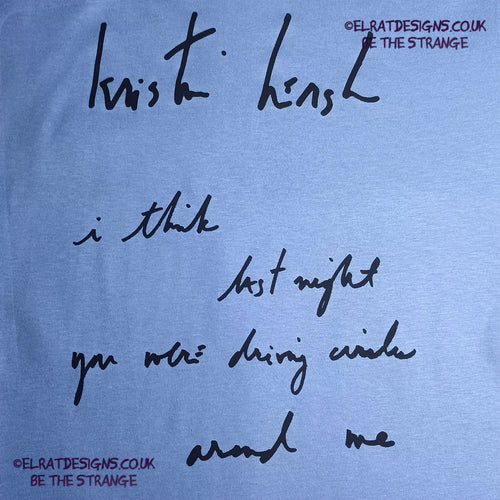 ©ELRATDESIGNS.CO.UK
BE THE STRANGE
kristin hersh
i think
last night
you were driving circles
around me
©ELRATDESIGNS.CO.UK
BE THE STRANGE